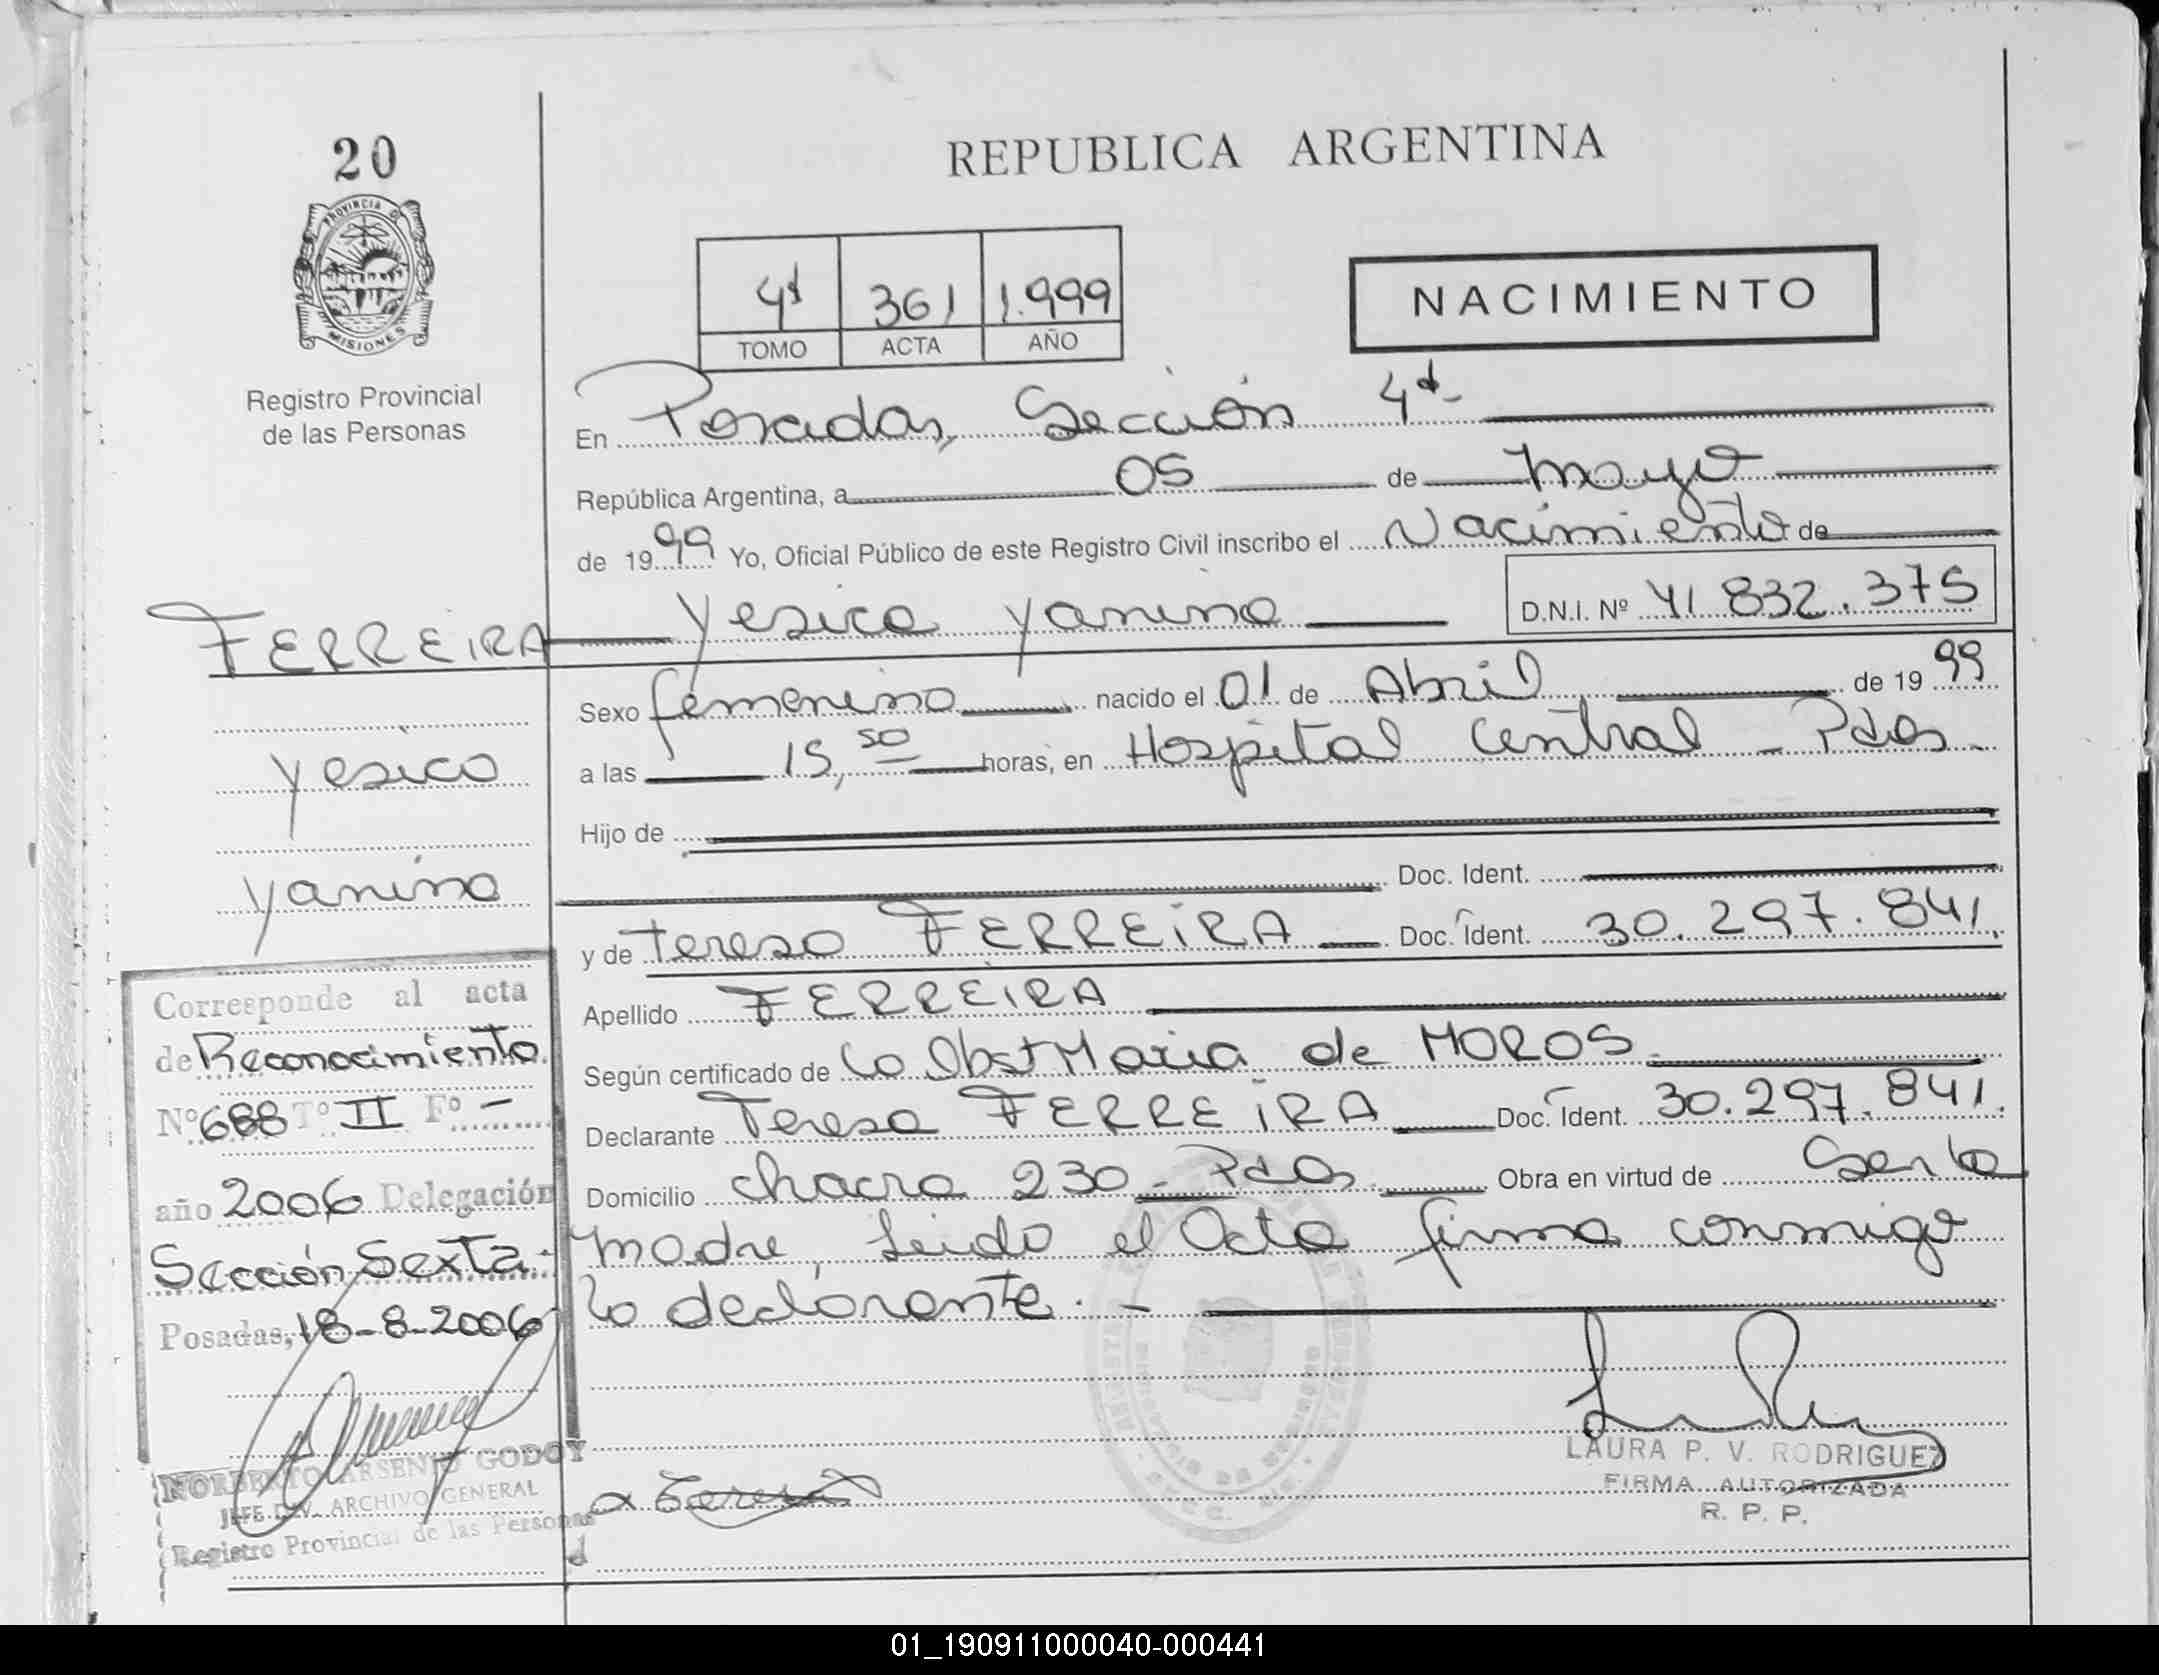 20
PROVINCIA DE
MISIONES
Registro Provincial
de las Personas
REPUBLICA ARGENTINA
4ª 361 1.999
TOMO ACTA AÑO
NACIMIENTO
En Posadas, Sección 4ª-
República Argentina, a 05 de mayo
de 1999 Yo, Oficial Público de este Registro Civil inscribo el Nacimiento de
FERREIRA Yesica Yanina D.N.I. Nº 41 832.375
Sexo femenino nacido el 01 de Abril de 1999
a las 15,50 horas, en Hospital Central - Pdas -
Hijo de
Doc. Ident.
y de Teresa FERREIRA Doc. Ident. 30.297.841.
Apellido FERREIRA
Según certificado de la Obst Maria de MOROS
Declarante Teresa FERREIRA Doc. Ident. 30.297.841.
Domicilio chacra 230 - Pdas. Obra en virtud de
madre, Leida el Acta firma conmigo
la declarante. -
Yesica
Yanina
Corresponde al acta
de Reconocimiento.
Nº 688 Tº II Fº -
año 2006 Delegación
Sección Sexta.
Posadas, 18-8-2006
NORBERTO ARSENIO GODOY
JEFE DIV. ARCHIVO GENERAL
Registro Provincial de las Personas
LAURA P. V. RODRIGUEZ
FIRMA AUTORIZADA
R. P. P.
01_190911000040-000441